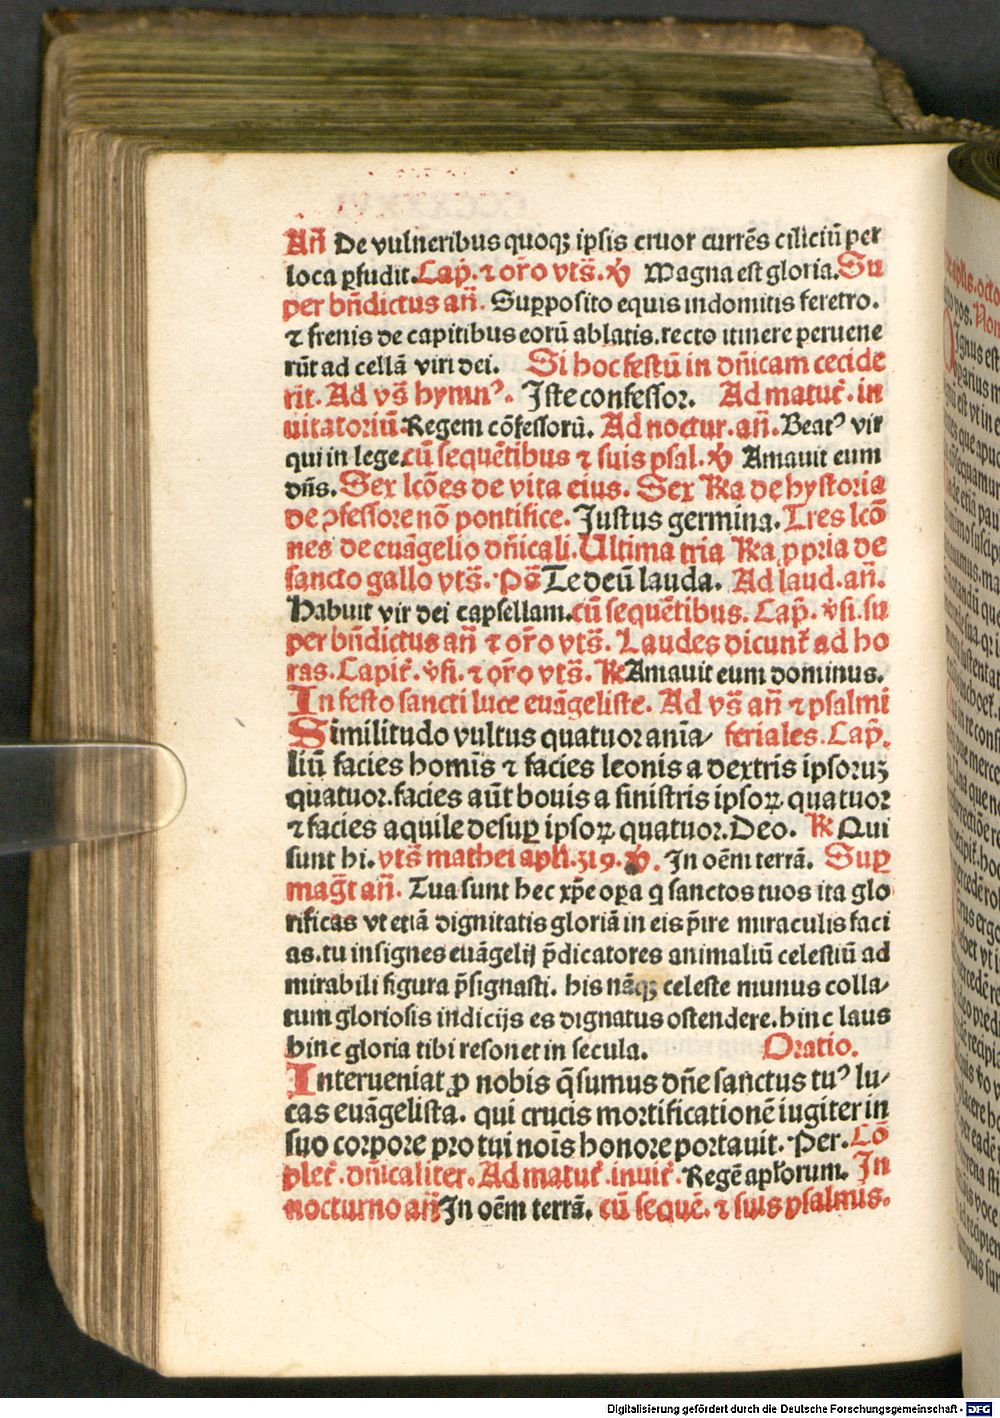 Añ De vulneribus quoqꝫ ipsis cruor currēs ciliciū per
loca ꝑfudit. Cap̃. ⁊ or̃o vts̃. ℣ Magna est gloria. Su
per bñdictus añ. Supposito equis indomitis feretro.
⁊ frenis de capitibus eorū ablatis. recto itinere peruene
rūt ad cellā viri dei. Si hoc festū in dñicam cecide
rit. Ad vs̃ hymnꝰ. Iste confessor. Ad matut̃. in
uitatoriū Regem cōfessorū. Ad noctur. añ. Beatꝰ vir
qui in lege. cū sequētibus ⁊ suis psal. ℣ Amauit eum
dñs. Sex lcōes de vita eius. Sex ℟a de hystoria
de ꝯfessore nō pontifice. Justus germina. Tres lcō
nes de euāgelio dñicali. Ultima tria ℟a ꝓpria de
sancto gallo vts̃. Pōs̄ Te deū lauda. Ad laud. añ.
Habuit vir dei capsellam. cū sequētibus. Cap̃. v̓si. su
per bñdictus añ ⁊ or̃o vts̃. Laudes dicunt̃ ad ho
ras. Capit̃. v̓si. ⁊ or̃o vts̃. ℟ Amauit eum dominus.
In festo sancti luce euāgeliste. Ad vs̃ añ ⁊ psalmi
Similitudo vultus quatuor anīa/ feriales. Cap̃.
liū facies homīs ⁊ facies leonis a dextris ipsoruꝫ
quatuor. facies aūt bouis a sinistris ipsoꝝ quatuor
⁊ facies aquile desuꝑ ipsoꝝ quatuor. Deo. ℟ Qui
sunt hi. vts̃ mathei apl̃i. 319. ℣. In oēm terrā. Suꝑ
mag̃t añ. Tua sunt hec xp̃e oꝑa q̄ sanctos tuos ita glo
rificas vt etiā dignitatis gloriā in eis p̄ire miraculis faci
as. tu insignes euāgelij p̄dicatores animaliū celestiū ad
mirabili figura p̄signasti. his nāqꝫ celeste munus colla/
tum gloriosis indicijs es dignatus ostendere. hinc laus
hinc gloria tibi resonet in secula. Oratio.
Interueniat ꝓ nobis q̄sumus dñe sanctus tuꝰ lu/
cas euāgelista. qui crucis mortificationē iugiter in
suo corpore pro tui noīs honore portauit. Per. Cō
plet̃. dñicaliter. Ad matut̃. inuit̃. Regē apl̃orum. In
nocturno añ In oēm terrā. cū sequē. ⁊ suis psalmis.
Digitalisierung gefördert durch die Deutsche Forschungsgemeinschaft - DFG